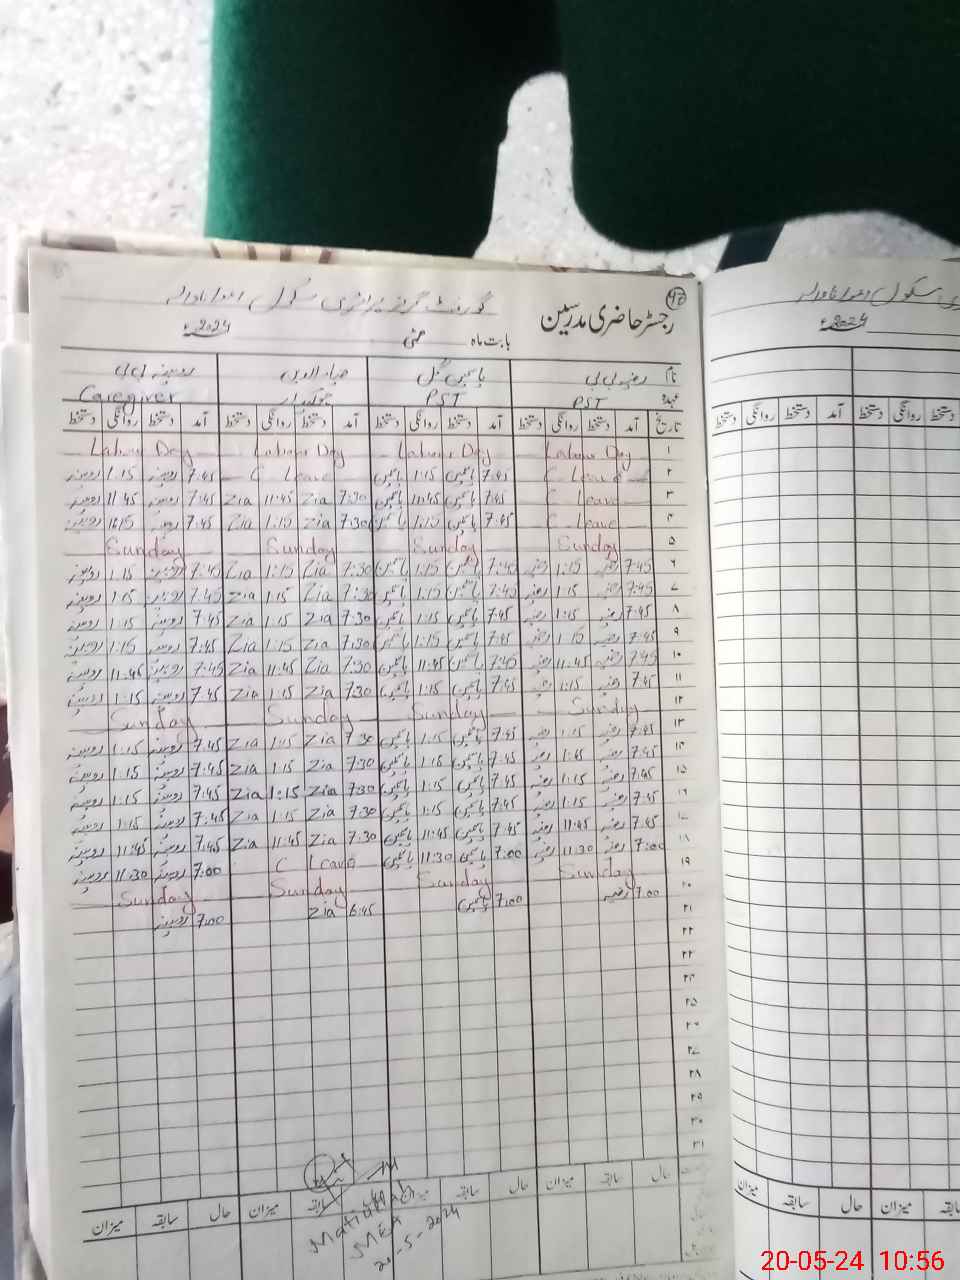 40
گورنمنٹ گرلز پرائمری سکول
رجسٹر حاضری مدرسین
بابت ماہ مئی 2024ء
نام رضیہ بی بی یاسمین گل ضیاء الدین روبینہ بی بی
عہدہ PST PST چوکیدار Caregiver
تاریخ آمد دستخط روانگی دستخط آمد دستخط روانگی دستخط آمد دستخط روانگی دستخط آمد دستخط روانگی دستخط
۱ Labour Day Labour Day Labour Day Labour Day
۲ C Leave 7:45 یاسمین 1:15 یاسمین C Leave 7:45 روبینہ 1:15 روبینہ
۳ C Leave 7:45 یاسمین 11:45 یاسمین 7:30 Zia 11:45 Zia 7:45 روبینہ 11:45 روبینہ
۴ C Leave 7:45 یاسمین 1:15 یاسمین 7:30 Zia 1:15 Zia 7:45 روبینہ 1:15 روبینہ
۵ Sunday Sunday Sunday Sunday
۶ 7:45 رضیہ 1:15 رضیہ 7:45 یاسمین 1:15 یاسمین 7:30 Zia 1:15 Zia 7:45 روبینہ 1:15 روبینہ
۷ 7:45 رضیہ 1:15 رضیہ 7:45 یاسمین 1:15 یاسمین 7:30 Zia 1:15 Zia 7:45 روبینہ 1:15 روبینہ
۸ 7:45 رضیہ 1:15 رضیہ 7:45 یاسمین 1:15 یاسمین 7:30 Zia 1:15 Zia 7:45 روبینہ 1:15 روبینہ
۹ 7:45 رضیہ 1:15 رضیہ 7:45 یاسمین 1:15 یاسمین 7:30 Zia 1:15 Zia 7:45 روبینہ 1:15 روبینہ
۱۰ 7:45 رضیہ 11:45 رضیہ 7:45 یاسمین 11:45 یاسمین 7:30 Zia 11:45 Zia 7:45 روبینہ 11:45 روبینہ
۱۱ 7:45 رضیہ 1:15 رضیہ 7:45 یاسمین 1:15 یاسمین 7:30 Zia 1:15 Zia 7:45 روبینہ 1:15 روبینہ
۱۲ Sunday Sunday Sunday Sunday
۱۳ 7:45 رضیہ 1:15 رضیہ 7:45 یاسمین 1:15 یاسمین 7:30 Zia 1:15 Zia 7:45 روبینہ 1:15 روبینہ
۱۴ 7:45 رضیہ 1:15 رضیہ 7:45 یاسمین 1:15 یاسمین 7:30 Zia 1:15 Zia 7:45 روبینہ 1:15 روبینہ
۱۵ 7:45 رضیہ 1:15 رضیہ 7:45 یاسمین 1:15 یاسمین 7:30 Zia 1:15 Zia 7:45 روبینہ 1:15 روبینہ
۱۶ 7:45 رضیہ 1:15 رضیہ 7:45 یاسمین 1:15 یاسمین 7:30 Zia 1:15 Zia 7:45 روبینہ 1:15 روبینہ
۱۷ 7:45 رضیہ 11:45 رضیہ 7:45 یاسمین 11:45 یاسمین 7:30 Zia 11:45 Zia 7:45 روبینہ 11:45 روبینہ
۱۸ 7:00 رضیہ 11:30 رضیہ 7:00 یاسمین 11:30 یاسمین C Leave 7:00 روبینہ 11:30 روبینہ
۱۹ Sunday Sunday Sunday Sunday
۲۰ 7:00 رضیہ 7:00 یاسمین 6:45 Zia 7:00 روبینہ
۲۱
۲۲
۲۳
۲۴
۲۵
۲۶
۲۷
۲۸
۲۹
۳۰
۳۱
حال سابقہ میزان حال سابقہ میزان حال سابقہ میزان حال سابقہ میزان
Matiullah
MEA
20-5-2024
سکول
2024ء
آمد دستخط روانگی دستخط
دستخط روانگی دستخط
میزان حال سابقہ میزان
20-05-24 10:56